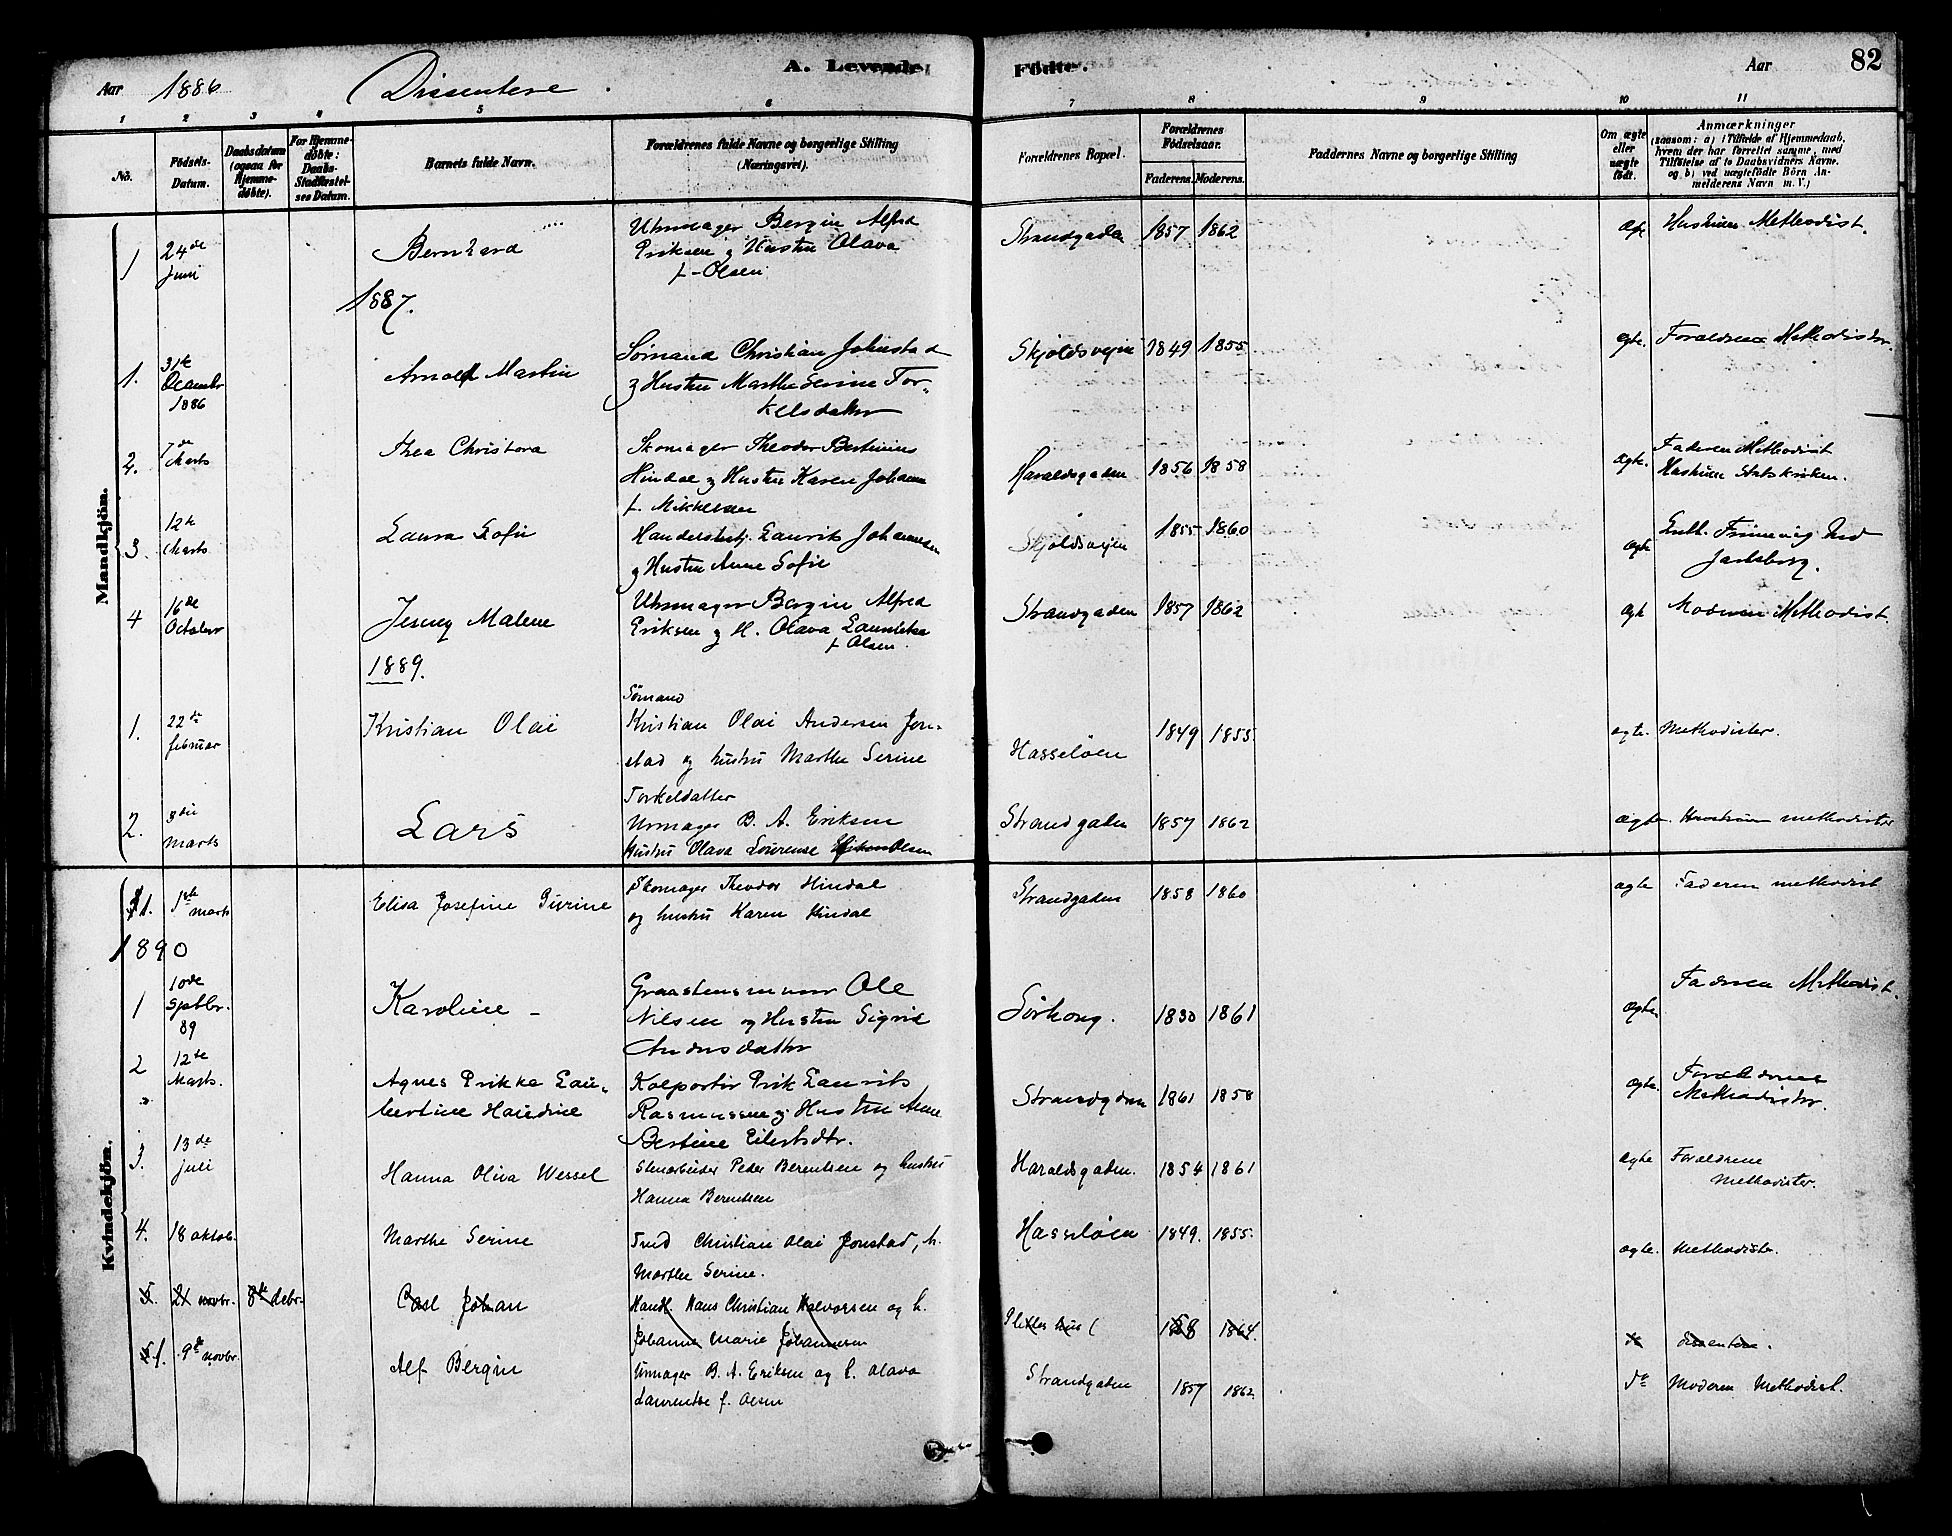 Aar 1886 Dissentere. A. Levende Födte. Aar 82
1 2 3 4 5 6 7 8 9 10 11
No. Födsels-Datum. Daabsdatum (ogsaa for Hjemmedöbte). For Hjemmedöbte: Daabs-Stadfæstelses Datum. Barnets fulde Navn. Forældrenes fulde Navne og borgerlige Stilling (Næringsvei). Forældrenes Bopæl. Forældrenes Födselsaar. Faderens. Moderens. Faddernes Navne og borgerlige Stilling Om ægte eller uægte födt. Anmærkninger (saasom: a) i Tilfælde af Hjemmedaab, hvem der har forrettet samme, med Tilföielse af to Daabsvidners Navne. og b) ved uægtefödte Börn Anmelderens Navn m. V.)
Mandkjön.
1 24de Juni Bernhard Uhrmager Bergin Alfred
Eriksen og Hustru Olava
f. Olsen. Strandgaden 1857. 1862 ægte Hustruen Methodist.
1887.
1. 31te Decembr 1886 Arnold Martin Sømand Christian Johnstad
og Hustru Marthe Serine Tor-
kelsdatter Skjoldsvejen 1849 1855 ægte. Forældrene Methodister.
2. 7de Marts Thea Christora Skomager Theodor Bertinius
Hindal og Hustru Karen Johanne
f. Mikkelsen Haraldsgaden 1856 1858 ægte. Faderen Methodist
Hustruen Statskirken.
3. 12te Marts Laura Sofie Handelsbetj. Laurits Johannesen
og Hustru Anne Sofie Skjoldsvejen 1855 1860 ægte
Jarlsberg.
4 16de October Jenny Malene Uhrmager Bergin Alfred
Eriksen og H. Olava Laurentse
f. Olsen. Strandgaden 1857 1862 ægte Moderen Methodist.
1889.
1. 22de februar Kristian Olai Sømand
Kristian Olai Andersen Jon-
stad og hustru Marthe Serine
Torkeldatter Hasseløen 1849 1855. ægte. Methodister.
2. 3die marts Lars Urmager B. A. Eriksen
Hustru Olava Lourense Olsen Strandgaden 1857 1862 ægte. Hustruen methodister
Kvindekjön.
1. 1ste marts Elisa Josefine Sivrine Skomager Theodor Hindal
og hustru Karen Hindal Strandgaden 1858 1860 ægte Faderen methodist
1890
1 10de Septbr. 89 Karoline – Graastensmurer Ole
Nilsen og Hustru Sigrid
Andersdatter Sørhoug. 1830 1861 ægte. Faderen Methodist.
2 12te Marts. Agnes Erikke Lau-
bertine Haudine Kolportør Erik Laurits
Rasmussen og Hustru Anne
Bertine Eilertsdtr. Strandgaden 1861 1858 ægte. Forældrene
Methodister.
3. 13de juli Hanna Oliva Wessel Stenarbeider Peder Berentsen og hustru
Hanna Berentsen Haraldsgaden. 1854 1861 ægte Forældrene
Methodister.
4. 18 oktob. Marthe Serine Smd Christian Olai Jonstad, h.
Marthe Serine. Hasseløen 1849. 1855. ægte. Methodister.
5. 21 novbr. 8de debr. Carl Johan Handl. Hans Christian Halvorsen og h.
Johanne Marie Johannesen 1858 1864. dissentere.
1. 9de novbr. Alf Bergin Urmager B. A. Eriksen og h. Olava
Laurentse f. Olsen Strandgaden 1857 1862 do Moderen Methodist.